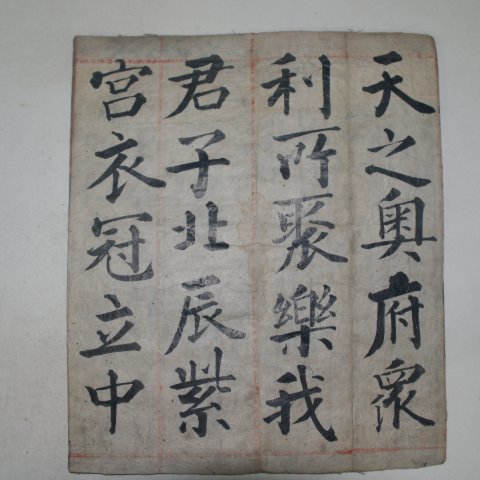 天之奥府衆
利所聚樂我
君子北辰紫
宮衣冠立中